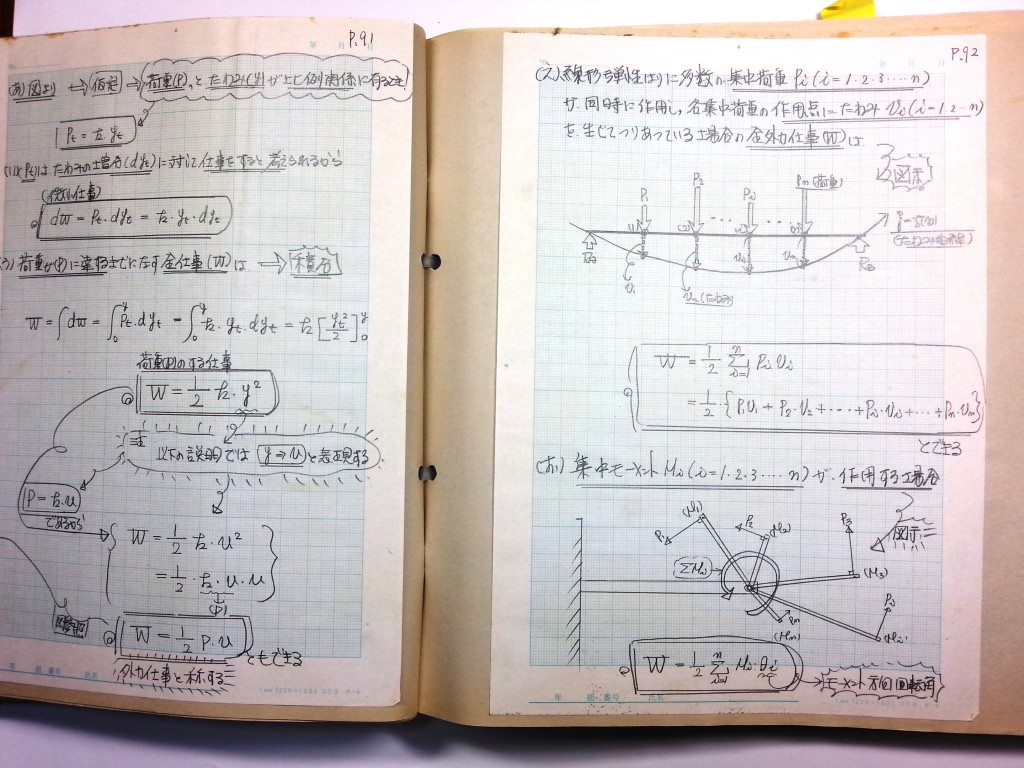 P.91
(あ) 図より ⟷ 仮定 → 荷重(P)とたわみ(y)が正比例関係に有るとき!
Pt = k yt
(い) Ptはたわみの増分(dyt)に対して仕事をすると考えられるから
(微小仕事)
dw = Pt・dyt = k・yt・dyt
(う) 荷重が(P)に達するまでになす全仕事(W)は ⇒ 積分
W = ∫dw = ∫₀^y Pt・dyt = ∫₀^y k・yt・dyt = k[yt²/2]₀^y
荷重(P)のする仕事
W = 1/2 k・y²
以下の説明では y ⇒ u と表現する
P = k・u
であるから
W = 1/2 k・u²
= 1/2・k・u・u
(P)
W = 1/2 P・u ともできる
外力仕事と称する
P.92
(え) 線形弾性はりに多数の集中荷重 Pi (i=1・2・3…n)
が同時に作用し、各集中荷重の作用点にたわみ Ui (i=1・2…n)
を生じてつりあっている場合の全外力仕事(W)は
図示
P1 P2 Pi Pn(荷重)
RA RB
U1 U2(たわみ) Ui Un
W = 1/2 Σ(i=1→n) Pi Ui
= 1/2・{P1U1 + P2・U2 + … + Pi・Ui + … + Pn・Un}
とできる
(お) 集中モーメント Mi (i=1・2・3…n) が作用する場合
図示
(M1) P1 P2 (M2) P3 (M3)
ΣMi
Pn (Mn) Pi (Mi)
W = 1/2 Σ(i=1→n) Mi・θi
→ モーメント方向回転角
年 組・番号 氏名